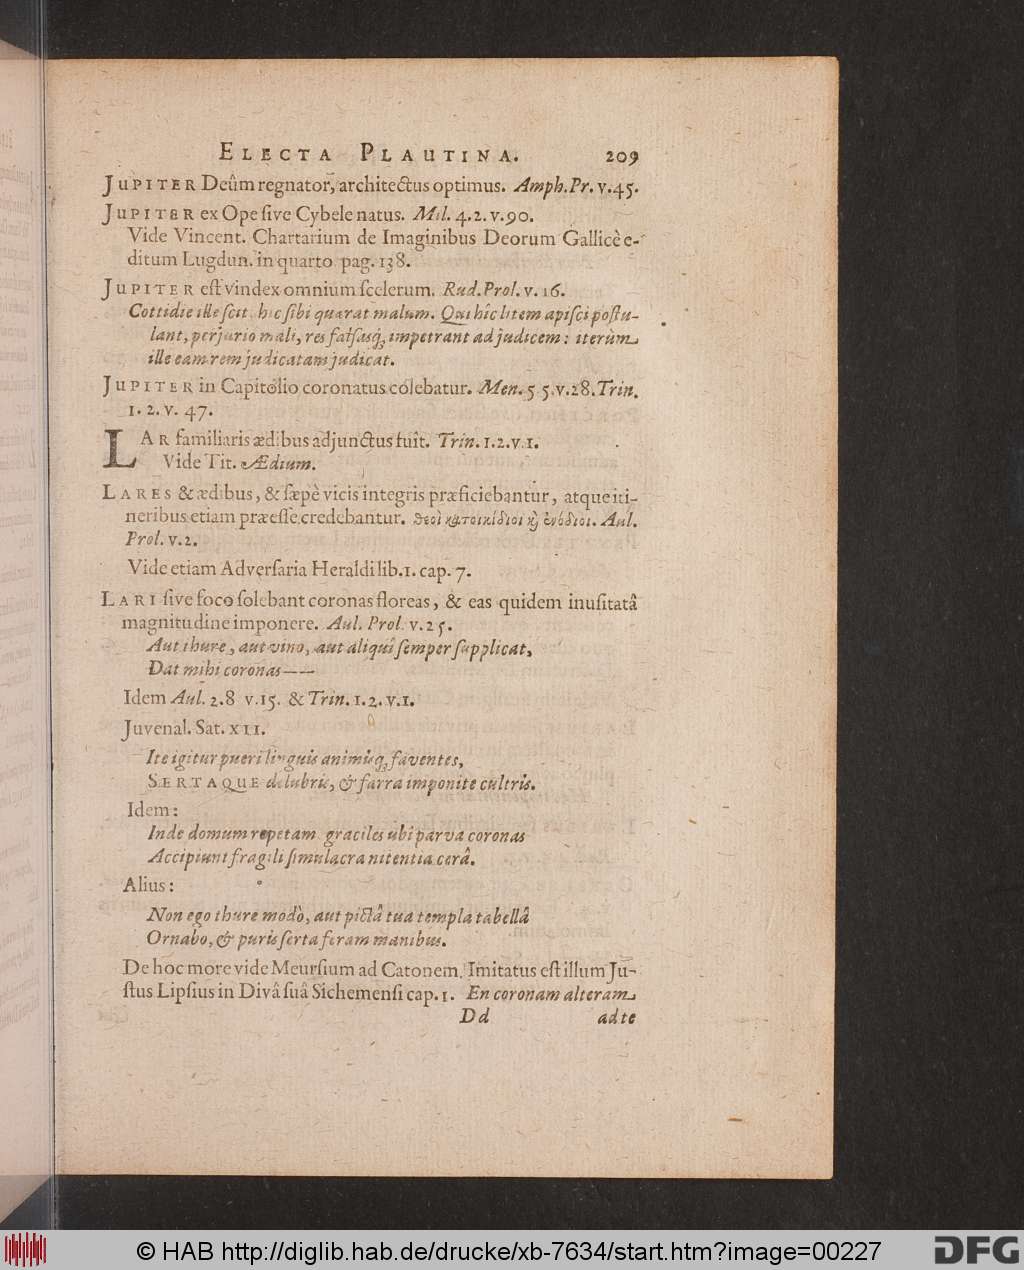 ELECTA PLAUTINA. 209
JUPITER Deûm regnator, architectus optimus. Amph. Pr. v. 45.
JUPITER ex Ope ſive Cybele natus. Mil. 4. 2. v. 90.
Vide Vincent. Chartarium de Imaginibus Deorum Gallicè e-
ditum Lugdun. in quarto pag. 138.
JUPITER eſt vindex omnium ſcelerum. Rud. Prol. v. 16.
Cottidie ille ſcit, hic ſibi quærat malum. Qui hîc litem apiſci poſtu-
lant, perjurio mali, res falſasq; impetrant ad judicem: iterùm
ille eam rem judicatam judicat.
JUPITER in Capitolio coronatus colebatur. Men. 5. 5. v. 28. Trin.
1. 2. v. 47.
LAR familiaris ædibus adjunctus fuit. Trin. 1. 2. v. 1.
Vide Tit. Ædium.
LARES & ædibus, & ſæpè vicis integris præficiebantur, atque iti-
neribus etiam præeſſe credebantur. θεοὶ κατοικίδιοι κὶ ἐνόδιοι. Aul.
Prol. v. 2.
Vide etiam Adverſaria Heraldi lib. 1. cap. 7.
LARI ſive foco ſolebant coronas floreas, & eas quidem inuſitatâ
magnitudine imponere. Aul. Prol. v. 25.
Aut thure, aut vino, aut aliquî ſemper ſupplicat,
Dat mihi coronas——
Idem Aul. 2. 8 v. 15. & Trin. 1. 2. v. 1.
Juvenal. Sat. XII.
Ite igitur pueri linguis animisq; faventes,
SERTAQUE delubris, & farra imponite cultris.
Idem:
Inde domum repetam graciles ubi parva coronas
Accipiunt fragili ſimulacra nitentia cerâ.
Alius:
Non ego thure modò, aut pictâ tua templa tabellâ
Ornabo, & puris ſerta feram manibus.
De hoc more vide Meurſium ad Catonem. Imitatus eſt illum Ju-
ſtus Lipſius in Divâ ſuâ Sichemenſi cap. 1. En coronam alteram
Dd ad te
© HAB http://diglib.hab.de/drucke/xb-7634/start.htm?image=00227
DFG